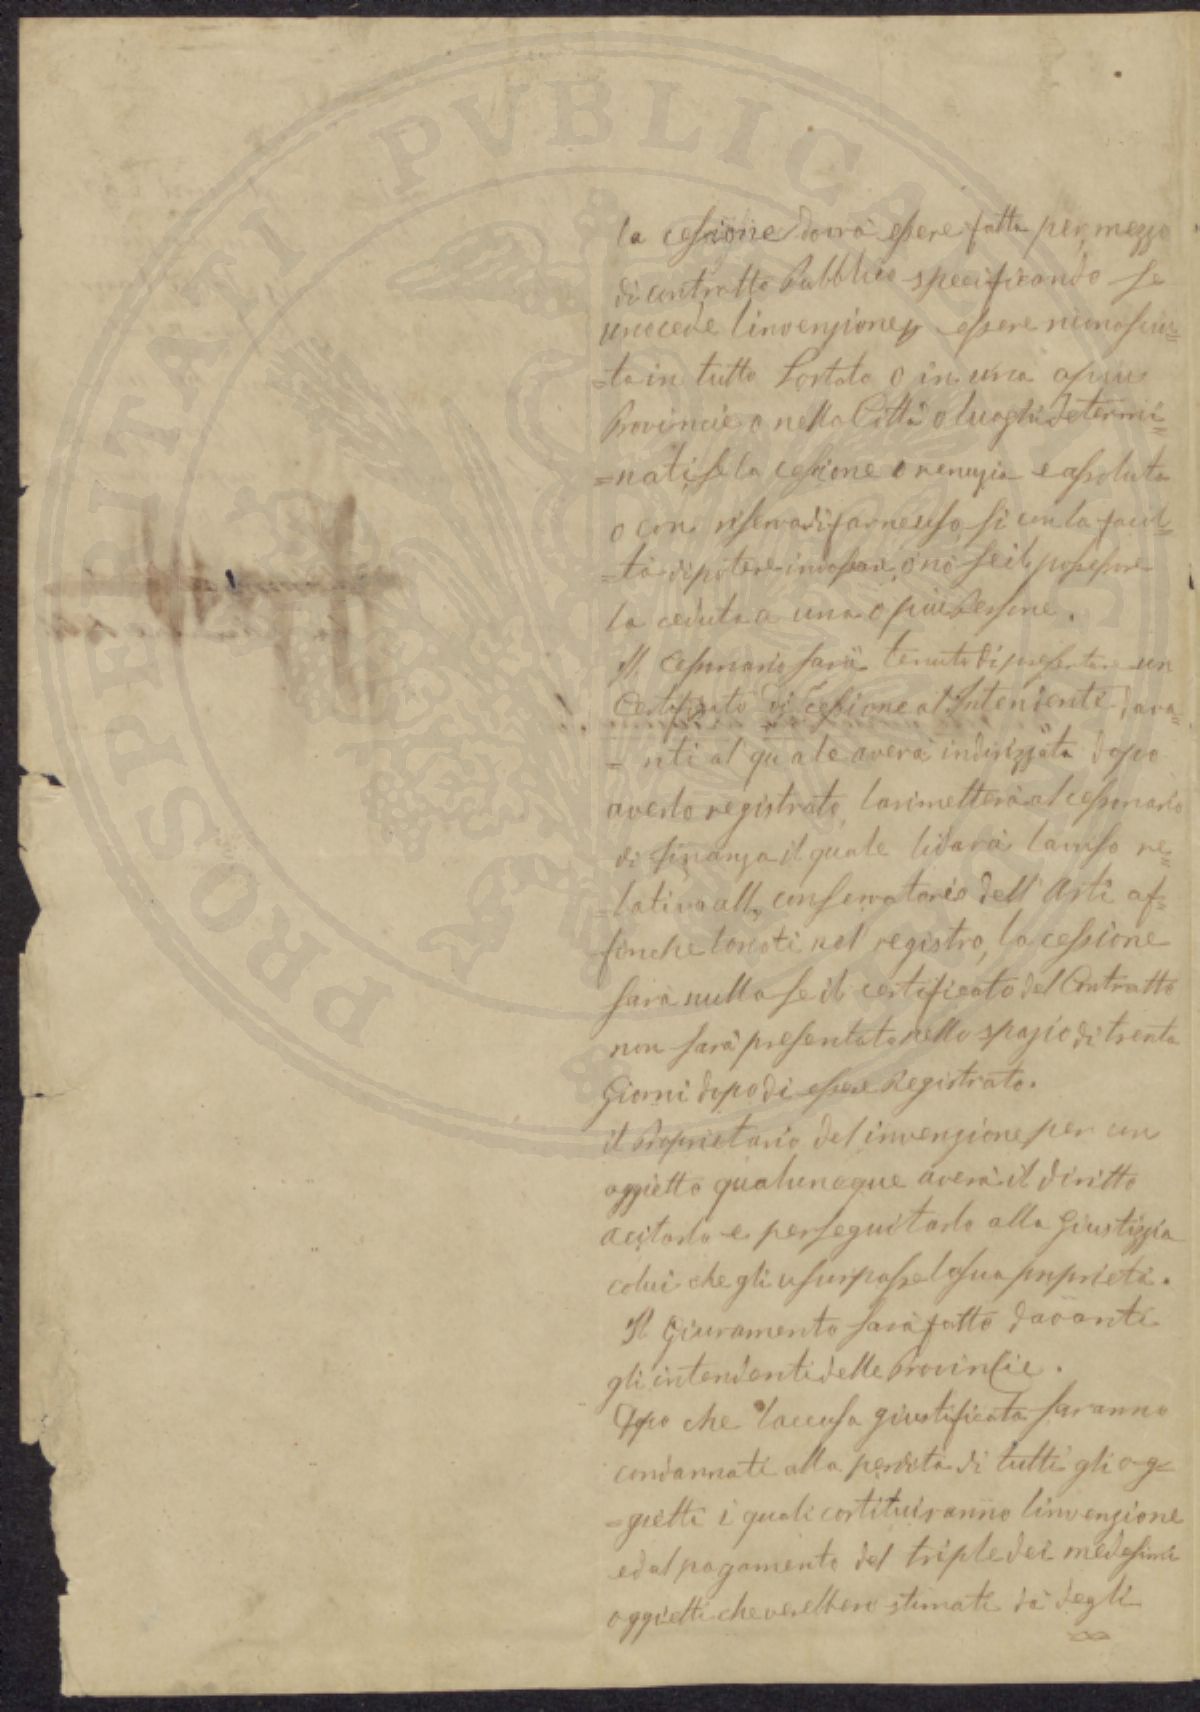 la cessione dovrà essere fatta per mezzo
di contratto Pubblico specificando se
uno cede l'invenzione p essere riconosciu=
=ta in tutto Lostato o in una opiu
Provincie o nella Città o luoghi determi=
=nati, se la cessione o renuzia e assoluta
o con riserva di farne uso si con la facul=
=ta di potere indossare, o nò se il possessore
la ceduta a una o piu Persone.
Il Cessonario sarà tenuto di presentare un
Certificato di Cessione al Intendente dava=
=nti al quale averà indirizzata dopo
averlo registrato, la rimetterà al cessonario
di finanza il quale li darà lavviso re=
=lativo all conservatorio dell Arti af=
finche lonoti nel registro, la cessione
sarà nulla se il certificato del Contratto
non sarà presentato nello spazio di trenta
Giorni dopo di essere Registrato.
il Proprietario del invenzione per un
oggietto qualuncque averà il diritto
a citarlo e perseguitarlo alla Giustizzia
colui che gli usurpasse la sua proprietà.
Il Giuramento sarà fatto davanti
gli intendenti delle Provincie.
Dopo che laccusa giustificata saranno
condannati alla perdita di tutti gli og=
=gietti i quali costituiranno linvenzione
ed al pagamento del triple dei medesimi
oggietti che verebbero stimati da degli
PROSPERITATI PVBLICAE